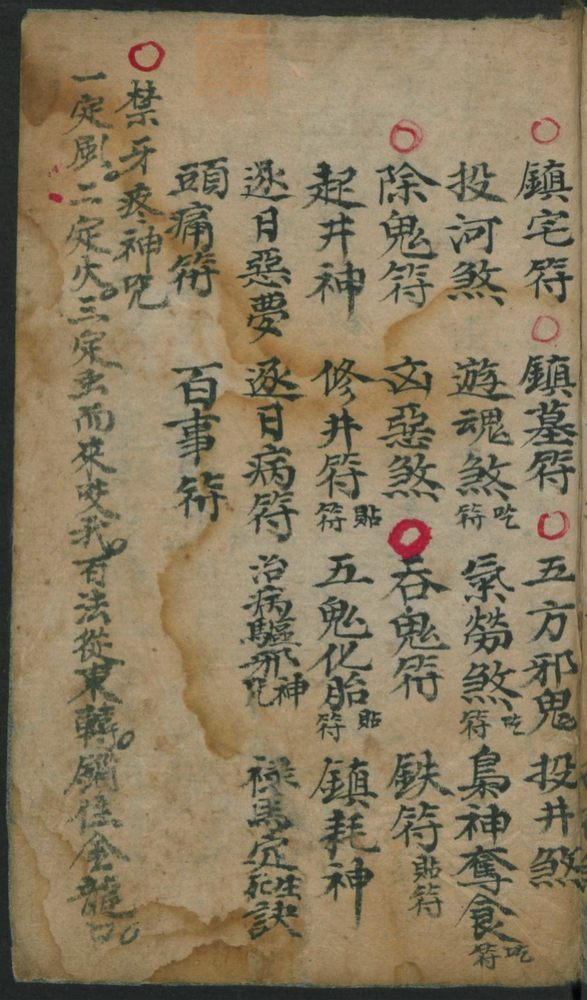 鎮宅符 鎮墓符 五方邪鬼 投井煞
投河煞 遊魂煞吃符 氣勞煞吃符 梟神奪食吃符
除鬼符 凶惡煞 吞鬼符 鉄符貼符
起井神 修井符貼符 五鬼化胎貼符 鎮耗神
逐日惡夢 逐日病符 治病驅邪神咒 祿馬定生死訣
頭痛符 百事符
禁牙疼神咒
一定風二定火三定虫而來咬我百法從東轉鎖住金龍口